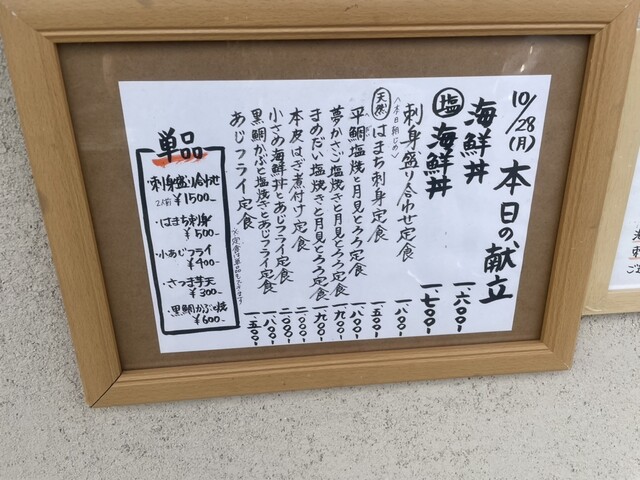 10/28(月) 本日の献立
海鮮丼 一六〇〇-
塩 海鮮丼 一七〇〇-
刺身盛り合わせ定食 一八〇〇-
天然 はまち刺身定食 一五〇〇-
平鯛塩焼と月見とろろ定食 一八〇〇-
夢かさご塩焼きと月見とろろ定食 一九〇〇-
まめだい塩焼きと月見とろろ定食 一九〇〇-
本皮はぎ煮付け定食 二〇〇〇-
小さめ海鮮丼とあじフライ定食 二〇〇〇-
黒鯛かぶと塩焼きとあじフライ定食 一八〇〇-
あじフライ定食 一五〇〇-
※定食は単品もできます
単品
・刺身盛り合わせ
2人前 ¥1500-
・はまち刺身
¥500-
・小あじフライ
¥400-
・さつま芋天
¥300-
・黒鯛かぶと焼
¥600-